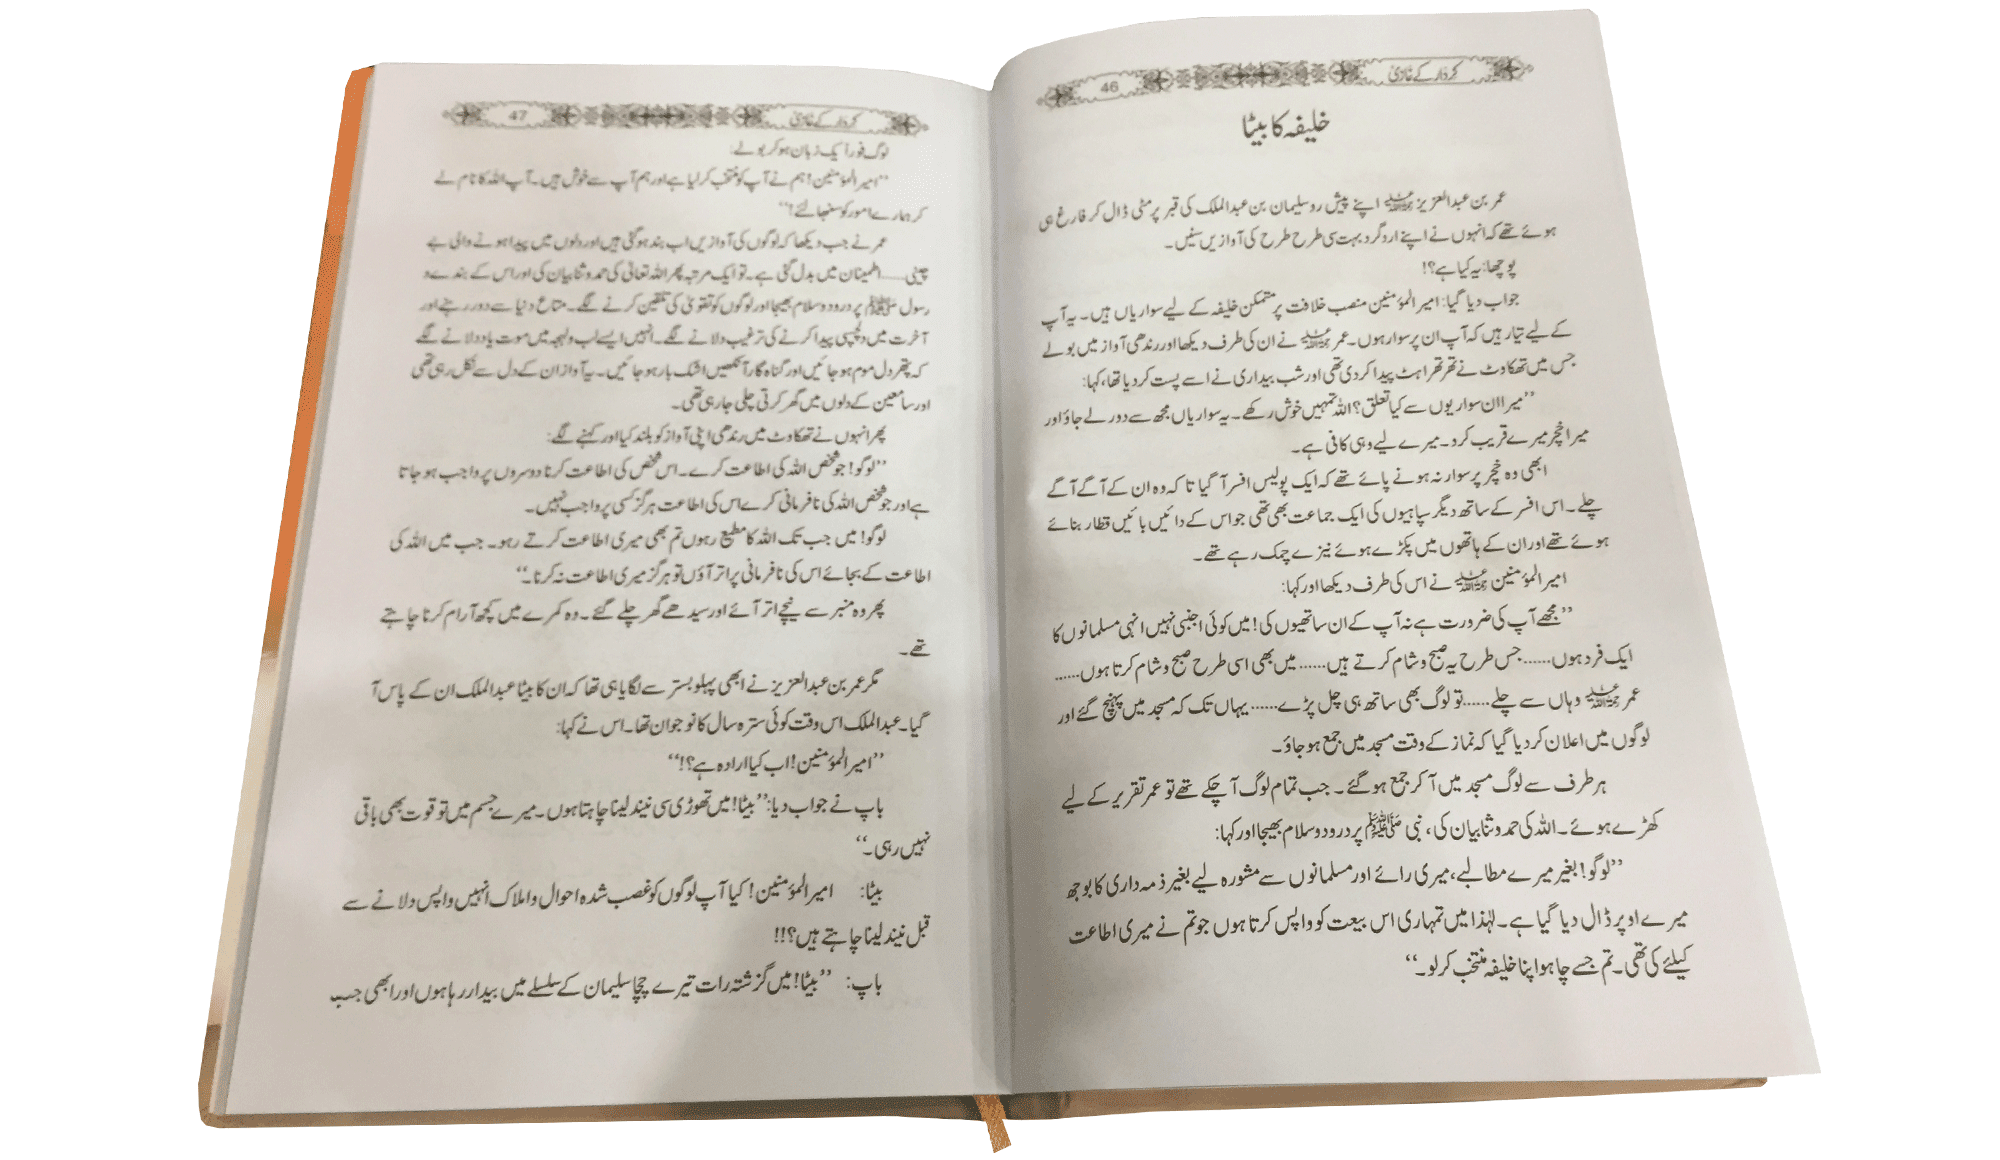 46
کردار کے غازی
خلیفہ کا بیٹا
عمر بن عبدالعزیز رحمۃ اللہ علیہ اپنے پیش رو سلیمان بن عبدالملک کی قبر پر مٹی ڈال کر فارغ ہی
ہوئے تھے کہ انہوں نے اپنے اردگرد بہت سی طرح طرح کی آوازیں سنیں۔
پوچھا: یہ کیا ہے؟!
جواب دیا گیا: امیر المؤمنین منصب خلافت پر متمکن خلیفہ کے لیے سواریاں ہیں۔ یہ آپ
کے لیے تیار ہیں کہ آپ ان پر سوار ہوں۔ عمر رحمۃ اللہ علیہ نے ان کی طرف دیکھا اور رندھی آواز میں بولے
جس میں تھکاوٹ نے تھرتھراہٹ پیدا کر دی تھی اور شب بیداری نے اسے پست کر دیا تھا، کہا:
”میرا ان سواریوں سے کیا تعلق؟ اللہ تمہیں خوش رکھے۔ یہ سواریاں مجھ سے دور لے جاؤ اور
میرا خچر میرے قریب کرد۔ میرے لیے وہی کافی ہے۔
ابھی وہ خچر پر سوار نہ ہونے پائے تھے کہ ایک پولیس افسر آ گیا تا کہ وہ ان کے آگے آگے
چلے۔ اس افسر کے ساتھ دیگر سپاہیوں کی ایک جماعت بھی تھی جو اس کے دائیں بائیں قطار بنائے
ہوئے تھے اور ان کے ہاتھوں میں پکڑے ہوئے نیزے چمک رہے تھے۔
امیر المؤمنین رحمۃ اللہ علیہ نے اس کی طرف دیکھا اور کہا:
”مجھے آپ کی ضرورت ہے نہ آپ کے ان ساتھیوں کی! میں کوئی اجنبی نہیں انہی مسلمانوں کا
ایک فرد ہوں...... جس طرح یہ صبح و شام کرتے ہیں...... میں بھی اسی طرح صبح و شام کرتا ہوں......
عمر رحمۃ اللہ علیہ وہاں سے چلے...... تو لوگ بھی ساتھ ہی چل پڑے...... یہاں تک کہ مسجد میں پہنچ گئے اور
لوگوں میں اعلان کر دیا گیا کہ نماز کے وقت مسجد میں جمع ہو جاؤ۔
ہر طرف سے لوگ مسجد میں آ کر جمع ہو گئے۔ جب تمام لوگ آ چکے تھے تو عمر تقریر کے لیے
کھڑے ہوئے۔ اللہ کی حمد و ثنا بیان کی، نبی ﷺ پر درود و سلام بھیجا اور کہا:
”لوگو! بغیر میرے مطالبے، میری رائے اور مسلمانوں سے مشورہ لیے بغیر ذمہ داری کا بوجھ
میرے اوپر ڈال دیا گیا ہے۔ لہٰذا میں تمہاری اس بیعت کو واپس کرتا ہوں جو تم نے میری اطاعت
کیلئے کی تھی۔ تم جسے چاہو اپنا خلیفہ منتخب کر لو۔“
47
کردار کے غازی
لوگ فوراً یک زبان ہو کر بولے:
”امیر المؤمنین! ہم نے آپ کو منتخب کر لیا ہے اور ہم آپ سے خوش ہیں۔ آپ اللہ کا نام لے
کر ہمارے امور کو سنبھالئے!“
عمر نے جب دیکھا کہ لوگوں کی آوازیں اب بند ہو گئی ہیں اور دلوں میں پیدا ہونے والی بے
چینی...... اطمینان میں بدل گئی ہے۔ تو ایک مرتبہ پھر اللہ تعالیٰ کی حمد و ثنا بیان کی اور اس کے بندے و
رسول ﷺ پر درود و سلام بھیجا اور لوگوں کو تقویٰ کی تلقین کرنے لگے۔ متاع دنیا سے دور رہنے اور
آخرت میں دلچسپی پیدا کرنے کی ترغیب دلانے لگے۔ انہیں ایسے لب و لہجہ میں موت یاد دلانے لگے
کہ پتھر دل موم ہو جائیں اور گناہ گار آنکھیں اشک بار ہو جائیں۔ یہ آواز ان کے دل سے نکل رہی تھی
اور سامعین کے دلوں میں گھر کرتی چلی جا رہی تھی۔
پھر انہوں نے تھکاوٹ میں رندھی اپنی آواز کو بلند کیا اور کہنے لگے:
”لوگو! جو شخص اللہ کی اطاعت کرے۔ اس شخص کی اطاعت کرنا دوسروں پر واجب ہو جاتا
ہے اور جو شخص اللہ کی نافرمانی کرے اس کی اطاعت ہرگز کسی پر واجب نہیں۔
لوگو! میں جب تک اللہ کا مطیع رہوں تم بھی میری اطاعت کرتے رہو۔ جب میں اللہ کی
اطاعت کے بجائے اس کی نافرمانی پر اتر آؤں تو ہرگز میری اطاعت نہ کرنا۔“
پھر وہ منبر سے نیچے اتر آئے اور سیدھے گھر چلے گئے۔ وہ کمرے میں کچھ آرام کرنا چاہتے
تھے۔
مگر عمر بن عبدالعزیز نے ابھی پہلو بستر سے لگایا ہی تھا کہ ان کا بیٹا عبدالملک ان کے پاس آ
گیا۔ عبدالملک اس وقت کوئی سترہ سال کا نوجوان تھا۔ اس نے کہا:
”امیر المؤمنین! اب کیا ارادہ ہے؟!“
باپ نے جواب دیا: ”بیٹا! میں تھوڑی سی نیند لینا چاہتا ہوں۔ میرے جسم میں تو قوت بھی باقی
نہیں رہی۔“
بیٹا: امیر المؤمنین! کیا آپ لوگوں کو غصب شدہ احوال و املاک انہیں واپس دلانے سے
قبل نیند لینا چاہتے ہیں؟!!
باپ: ”بیٹا! میں گزشتہ رات تیرے چچا سلیمان کے سلسلے میں بیدار رہا ہوں اور ابھی جب